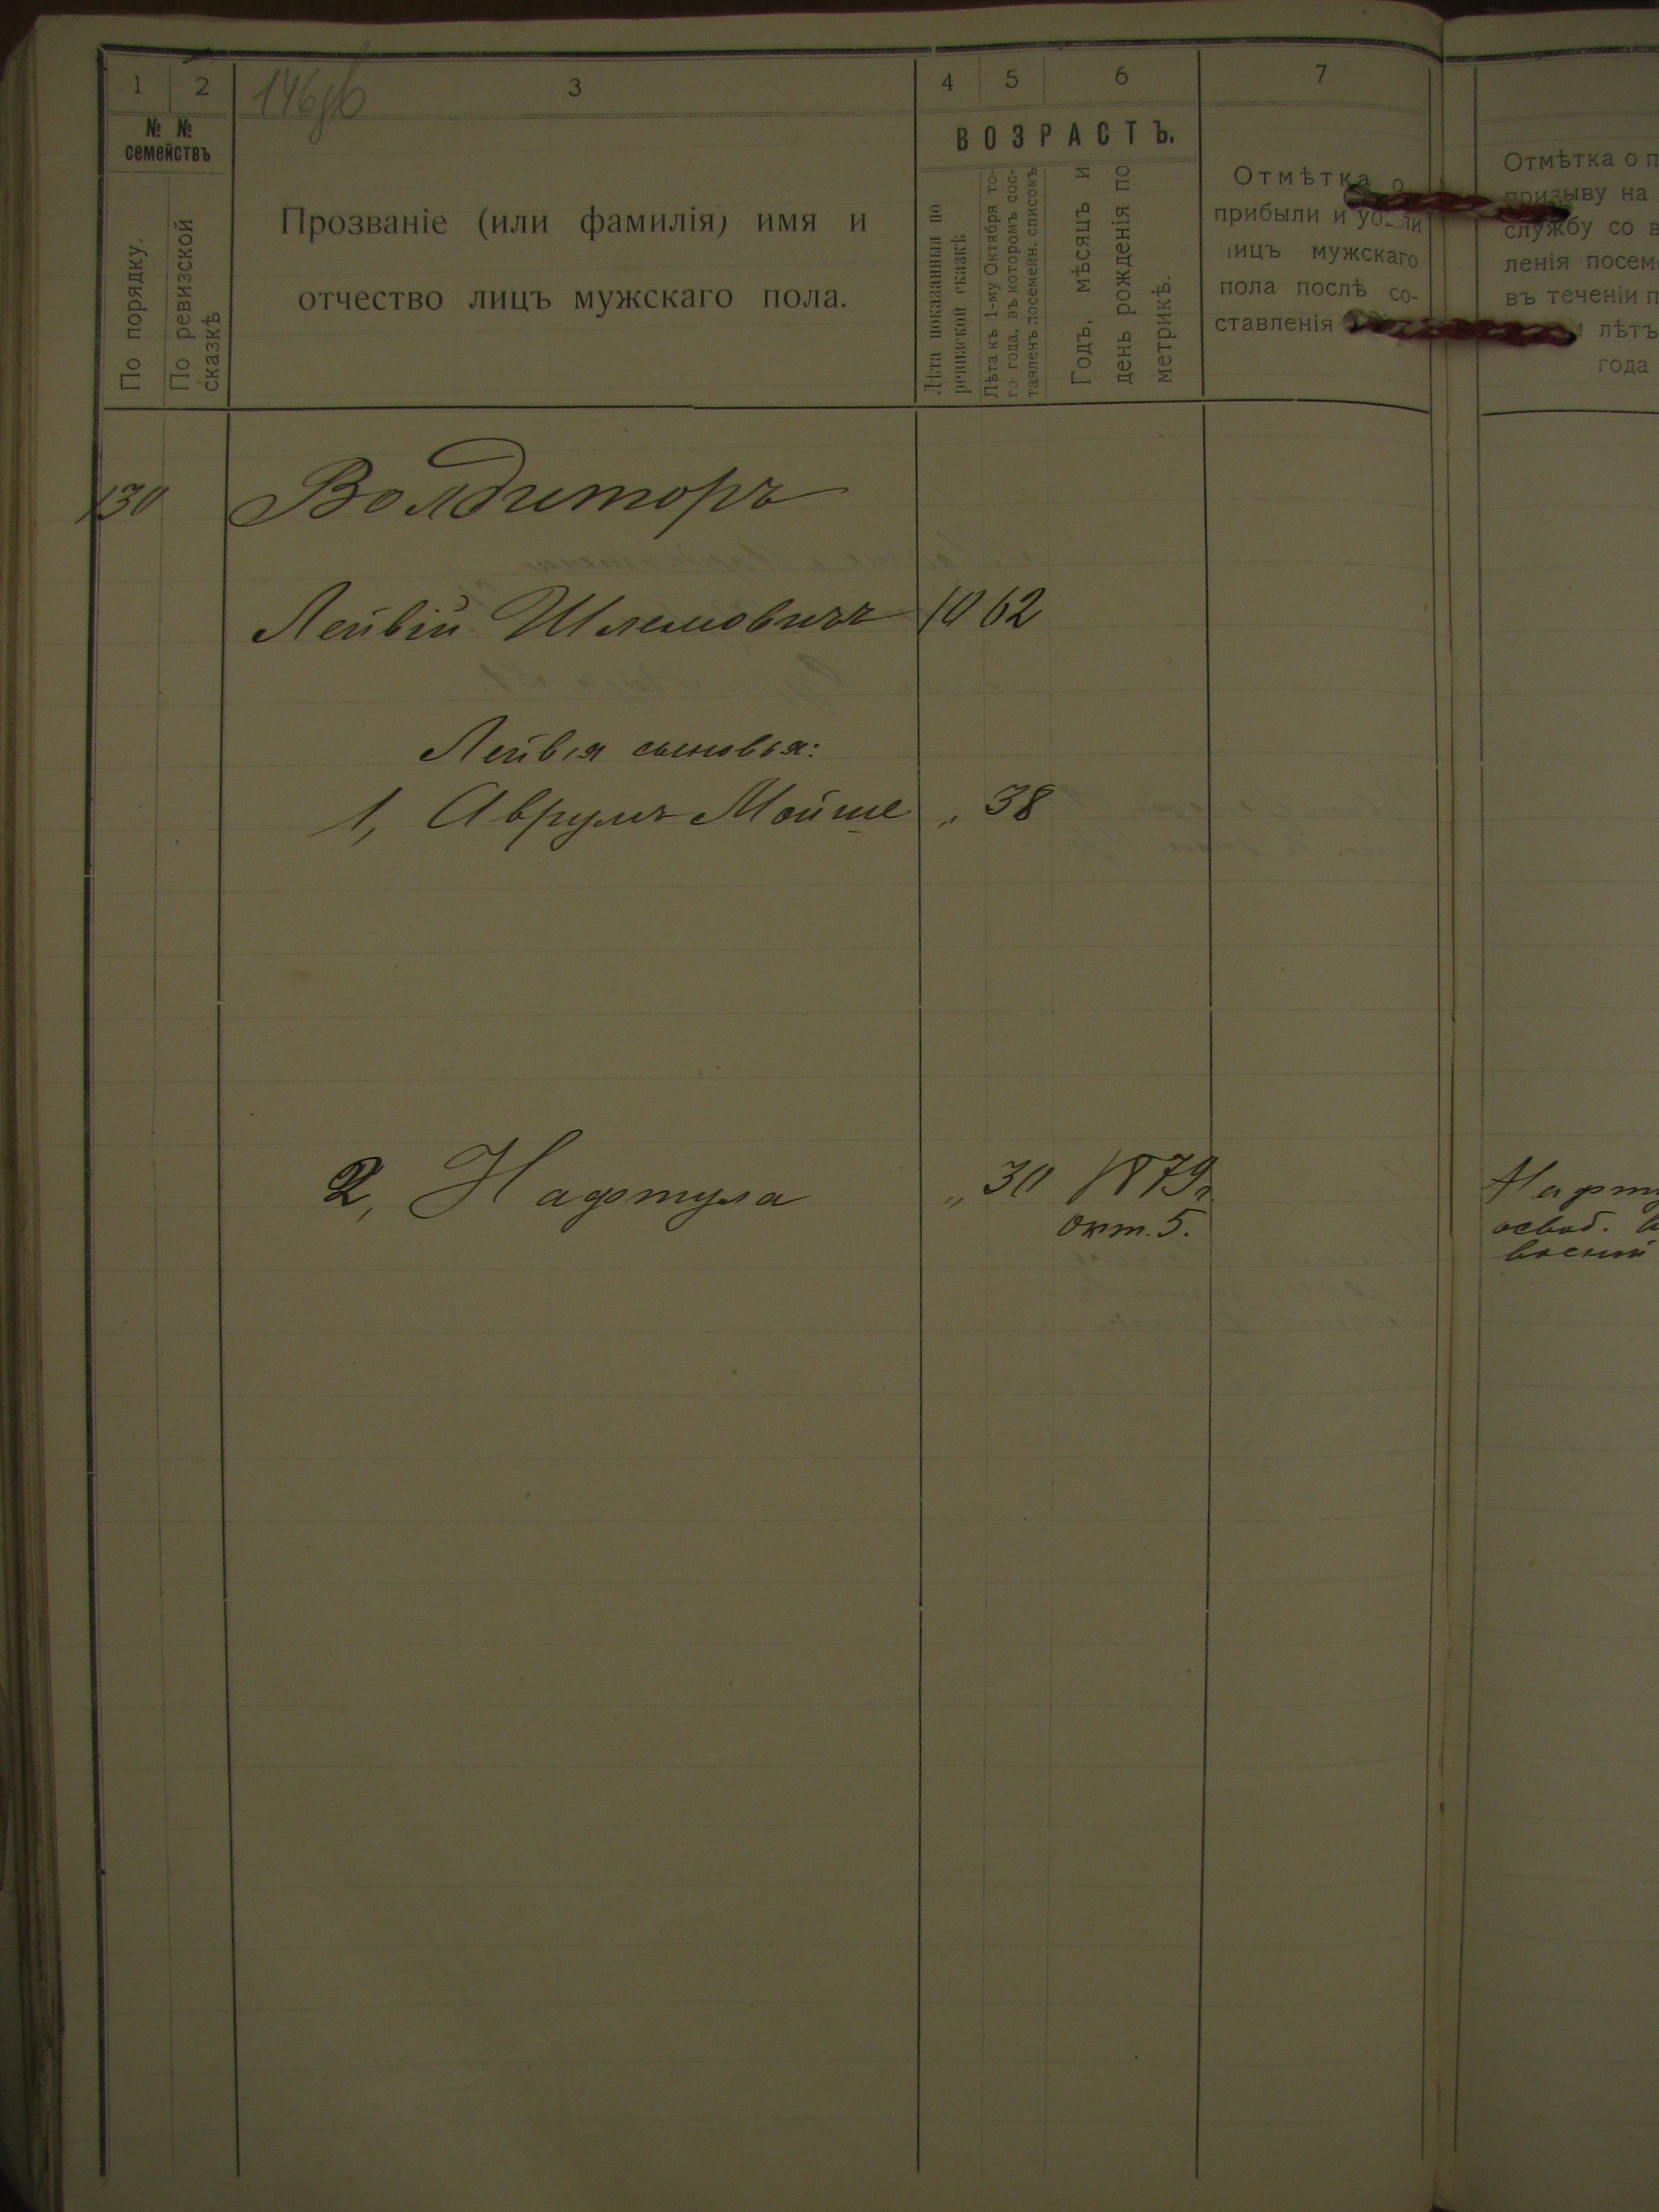 1 2 3 4 5 6 7
146об
№ № семействъ
По порядку.
По ревизской сказкѣ
Прозваніе (или фамилія) имя и
отчество лицъ мужскаго пола.
ВОЗРАСТЪ.
Лѣта показанныя по ревизской сказкѣ
Лѣта къ 1-му Октября то-
го года, въ которомъ сос-
тавленъ посемейн. списокъ
Годъ, мѣсяцъ и
день рожденія по
метрикѣ.
Отмѣтка о
прибыли и убыли
лицъ мужскаго
пола послѣ со-
ставленія
Отмѣтка о п
призыву на
службу со в
ленія посем
въ теченіи п
лѣтъ
года
130 Волдиторъ
Лейвій Шлемовичъ 10 62
Лейвія сыновья:
1, Аврумъ Мойше „ 38
2, Нафтула „ 30 1879г.
Окт. 5.
Нафту
освоб.